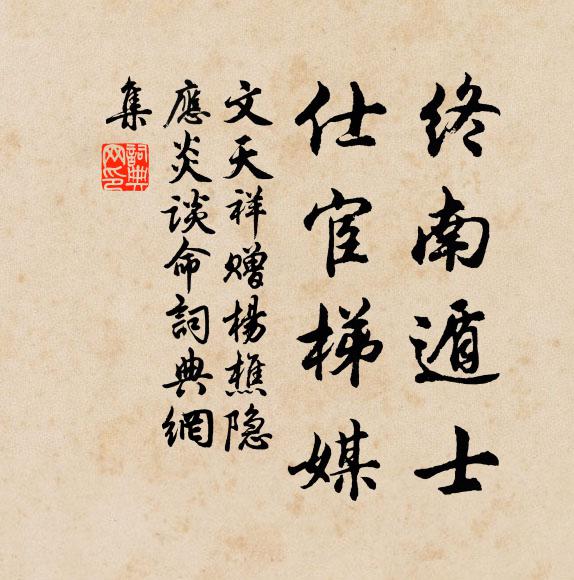 终南遁士
仕宦梯媒
文天祥赠杨樵隐
應炎谈命詞典網
集
詞典
网印